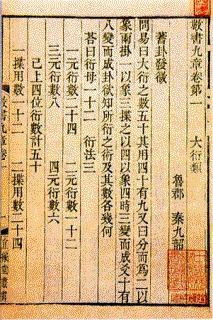 數書九章卷第一
大衍類
魯郡 秦九韶
蓍卦發微
問易曰大衍之數五十其用四十有九又曰分而為二以
象兩掛一以象三揲之以四以象四時三變而成爻十有
八變而成卦欲知所衍之術及其數各幾何
荅曰衍母一十二 衍法三
一元衍數二十四 二元衍數一十二
三元衍數八 四元衍數六
已上四位衍數計五十
一揲用數一十二 二揲用數二十四
數書九章卷一
宜稼堂叢書